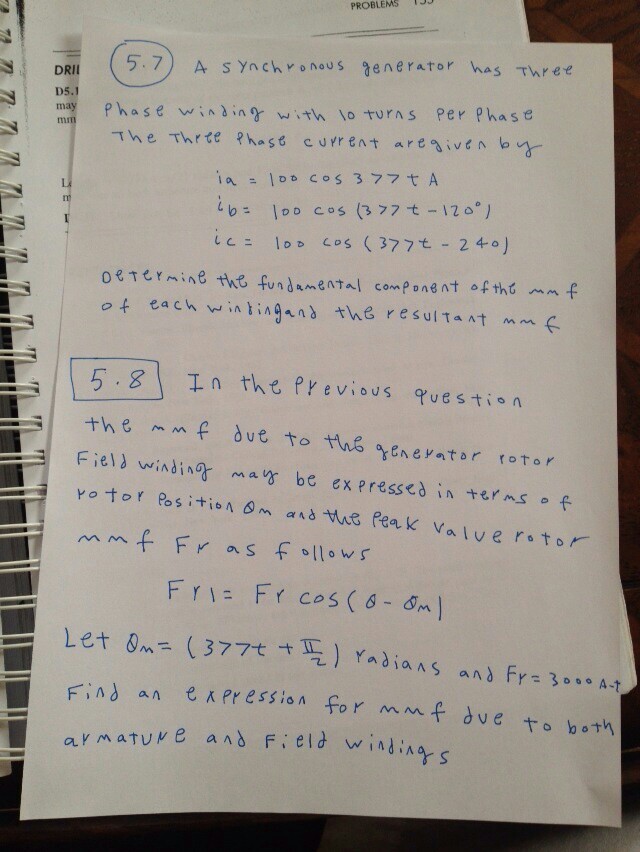 PROBLEMS 155
DRIL
D5.1
may
mm
L
m
5.7 A synchronous generator has three
Phase winding with 10 turns per phase
The Three Phase current aregiven by
ia = 100 cos 377t A
ib = 100 cos (377t - 120°)
ic = 100 cos (377t - 240)
Determine the fundamental component of the mmf
of each windingand the resultant mmf
5.8 In the Previous question
the mmf due to the generator rotor
Field winding may be expressed in terms of
rotor Position θm and the Peak value rotor
mmf Fr as follows
Fr1 = Fr cos(θ - θm)
Let θm = (377t + π/2) radians and Fr = 3000 A-t
Find an expression for mmf due to both
armature and Field windings